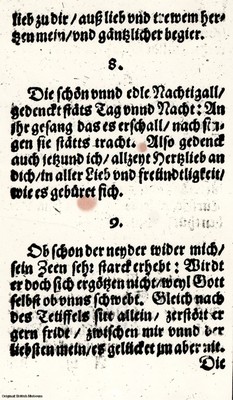 lieb zu dir / auß lieb vnd trewem her-
tzen mein / vnd gäntzlicher begier.
8.
Die schön vnnd edle Nachtigall /
gedenckt stäts Tag vnnd Nacht: An
jhr gesang das es erschall / nach sin-
gen sie stätts tracht. Also gedenck
auch jetzund ich / allzeyt Hertzlieb an
dich / in aller Lieb vnd freündtligkeit /
wie es gebüret sich.
9.
Ob schon der neyder wider mich /
sein Zeen sehr starck erhebt: Wirdt
er doch sich ergötzen nicht / weyl Gott
selbst ob vnns schwebt. Gleich nach
des Teüffels sitt allein / zerstört er
gern fride / zwischen mir vnnd der
liebsten mein / es gelücket jm aber nit.
Die